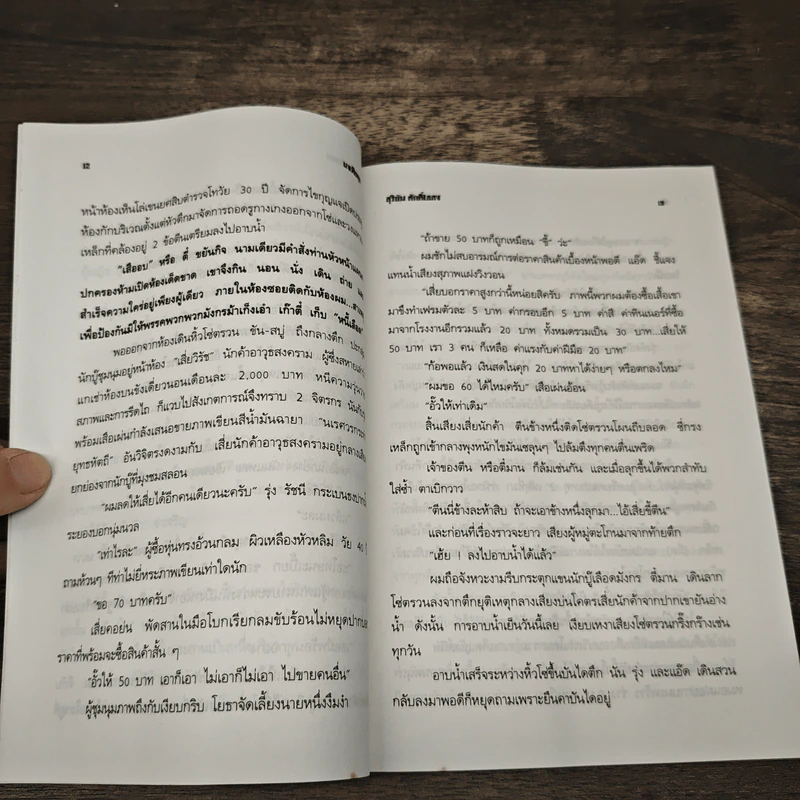 12
หน้าห้องเห็นโล่เขนยศสิบตำรวจโทวัย 30 ปี จัดการไขกุญแจเปิด
ห้องกักบริเวณตั้งแต่หัวตึกมาจัดการถอดรูกางเกงออกจากโซ่และ
เหล็กที่คล้องอยู่ 2 ข้อตีนเตรียมลงไปอาบน้ำ
"เสือลบ" หรือ ตี๋ ขยันกิจ นามเดียวมีคำสั่งท่านหัวหน้า
ปกครองห้ามเปิดห้องเด็ดขาด เขาจึงกิน นอน นั่ง เดิน ถ่าย
สำเร็จความใคร่อยู่เพียงผู้เดียว ภายในห้องซอยติดกับห้องผม...
เพื่อป้องกันมิให้พรรคพวกพวกมังกรม้าเก็งเอา เก๊าตี๋ เก็บ
พอออกจากห้องเดินหิ้วโซ่ตรวน ขัน-สบู่ ถึงกลางตึก
นักบู๊ชุมนุมอยู่หน้าห้อง "เสี่ยวิรัช" นักค้าอาวุธสงคราม ผู้ซึ่ง
แกเช่าห้องบนขังเดี่ยวนอนเดือนละ 2,000 บาท หนีความ
สภาพและการรีดไถ ก็แวบไปสังเกตการณ์จึงทราบ 2 จิตรกร
พร้อมเสือเผ่นกำลังเสนอขายภาพเขียนสีน้ำมันฉายา "นเรศวร
ยุทธหัตถี" อันวิจิตรงดงามกับ เสี่ยนักค้าอาวุธสงครามอยู่
ยกย่องจากนักบู๊ที่มุงชมสลอน
"ผมลดให้เสี่ยได้อีกคนเดียวนะครับ" รุ่ง รัชนี กระเบนธง
ระยองบอกนุ่มนวล
"เท่าไรล่ะ" ผู้ซื้อหุ่นทรงอ้วนกลม ผิวเหลืองหัวหลิม วัย 40
ถามห้วนๆ ทีท่าไม่ยี่หระภาพเขียนเท่าใดนัก
"ขอ 70 บาทครับ"
เสี่ยคอย่น พัดสานในมือโบกเรียกลมขับร้อนไม่หยุด
ราคาที่พร้อมจะซื้อสินค้าสั้น ๆ
"อั๊วให้ 50 บาท เอาก็เอา ไม่เอาก็ไม่เอา ไปขายคนอื่น"
ผู้ชุมนุมภาพถึงกับเงียบกริบ โยธาจัดเลี้ยงนายหนึ่งงึมงำ
"ถ้าขาย 50 บาทก็ถูกเหมือน 'ขี้' ว่ะ"
ผมชักไม่สบอารมณ์การต่อราคาสินค้าเบื้องหน้าพอดี แอ๊ด ชี้แจง
แทนน้ำเสียงสุภาพแฝงวิงวอน
"เสี่ยบอกราคาสูงกว่านี้หน่อยสิครับ ภาพนี้พวกผมต้องซื้อเสื้อเขา
มาขึงทำเฟรมตัวละ 5 บาท ค่ากรอบอีก 5 บาท ค่าสี ค่าทินเนอร์ที่ซื้อ
มาจากโรงงานอีกรวมแล้ว 20 บาท ทั้งหมดรวมเป็น 30 บาท...เสี่ยให้
50 บาท เรา 3 คน ก็เหลือ ค่าแรงกับค่าฝีมือ 20 บาท"
"ก้อพอแล้ว เงินสดในคุก 20 บาทหาได้ง่ายๆ หรือตกลงไหม"
"ผมขอ 60 ได้ไหมครับ" เสือเผ่นอ้อน
"อั๊วให้เท่าเดิม"
สิ้นเสียงเสี่ยนักค้า ตีนข้างหนึ่งติดโซ่ตรวนโผนถีบลอด ซี่กรง
เหล็กถูกเข้ากลางพุงหนักไขมันเซลุนๆ ไปล้มตึงทุกคนตื่นเพริด
เจ้าของตีน หรือตี๋มาน ก็ล้มเช่นกัน และเมื่อลุกขึ้นได้พวกสำทับ
ใส่ซ้ำ ตาเบิกวาว
"ตีนนี่ข้างละห้าสิบ ถ้าจะเอาข้างหนึ่งลุกมา...ไอ้เสี่ยขี้ตืน"
และก่อนที่เรื่องราวจะยาว เสียงผู้หมู่ตะโกนมาจากท้ายตึก
"เฮ้ย ! ลงไปอาบน้ำได้แล้ว"
ผมถือจังหวะงามรีบกระตุกแขนนักบู๊เลือดมังกร ตี๋มาน เดินลาก
โซ่ตรวนลงจากตึกยุติเหตุกลางเสียงบ่นโคตรเสี่ยนักค้าจากปากเขายันอ่าง
น้ำ ดังนั้น การอาบน้ำเย็นวันนี้เลย เงียบเหงาเสียงโซ่ตรวนกริ๊งกร๊างเช่น
ทุกวัน
อาบน้ำเสร็จระหว่างหิ้วโซ่ขึ้นบันไดตึก นัน รุ่ง และแอ๊ด เดินสวน
กลับลงมาพอดีก็หยุดถามเพราะยืนคาบันไดอยู่